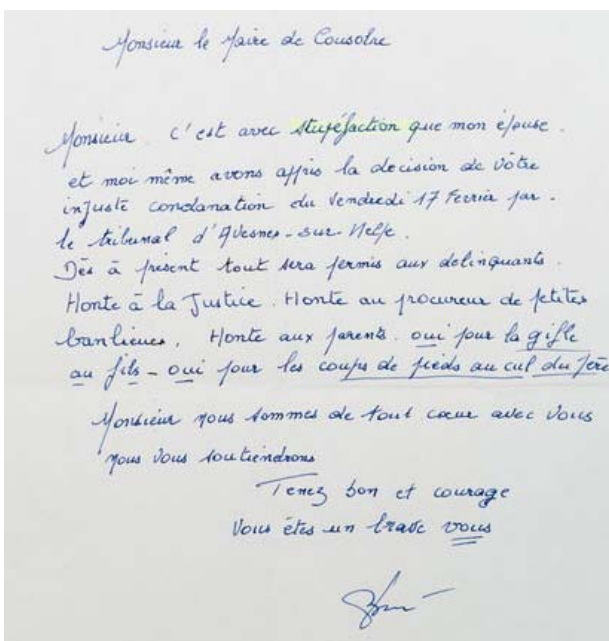 Monsieur le Maire de Cousolre
Monsieur. C'est avec stupéfaction que mon épouse.
et moi même avons appris la decision de vôtre
injuste condanation du Vendredi 17 Fevrier par.
le tribunal d'Avesnes-sur-Helpe.
Dès à présent tout sera permis aux delinquants.
Honte à la Justice. Honte au procureur de petites
banlieues. Honte aux parents. oui pour la gifle
au fils - oui pour les coups de pieds au cul du père
Monsieur nous sommes de tout cœur avec vous
nous vous soutiendrons
Tenez bon et courage
Vous êtes un brave vous